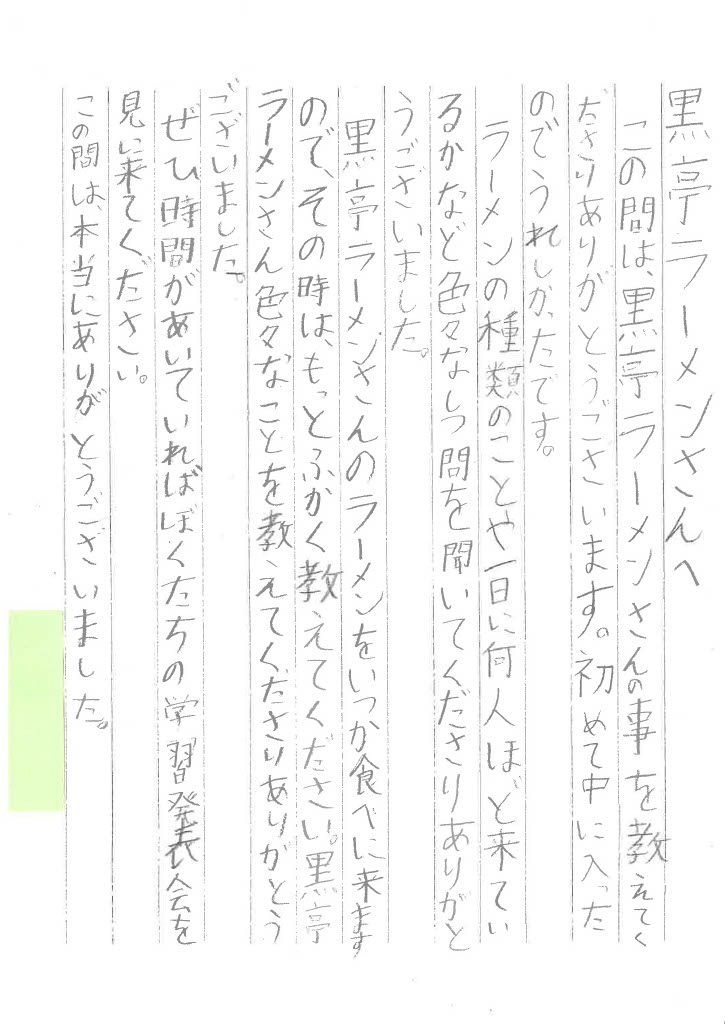 黒亭ラーメンさんへ
この間は、黒亭ラーメンさんの事を教えてく
ださりありがとうございます。初めて中に入った
のでうれしかったです。
ラーメンの種類のことや一日に何人ほど来てい
るかなど色々なしつ問を聞いてくださりありがと
うございました。
黒亭ラーメンさんのラーメンをいつか食べに来ます
ので、その時は、もっとふかく教えてください。黒亭
ラーメンさん色々なことを教えてくださりありがとう
ございました。
ぜひ時間があいていればぼくたちの学習発表会を
見に来てください。
この間は、本当にありがとうございました。